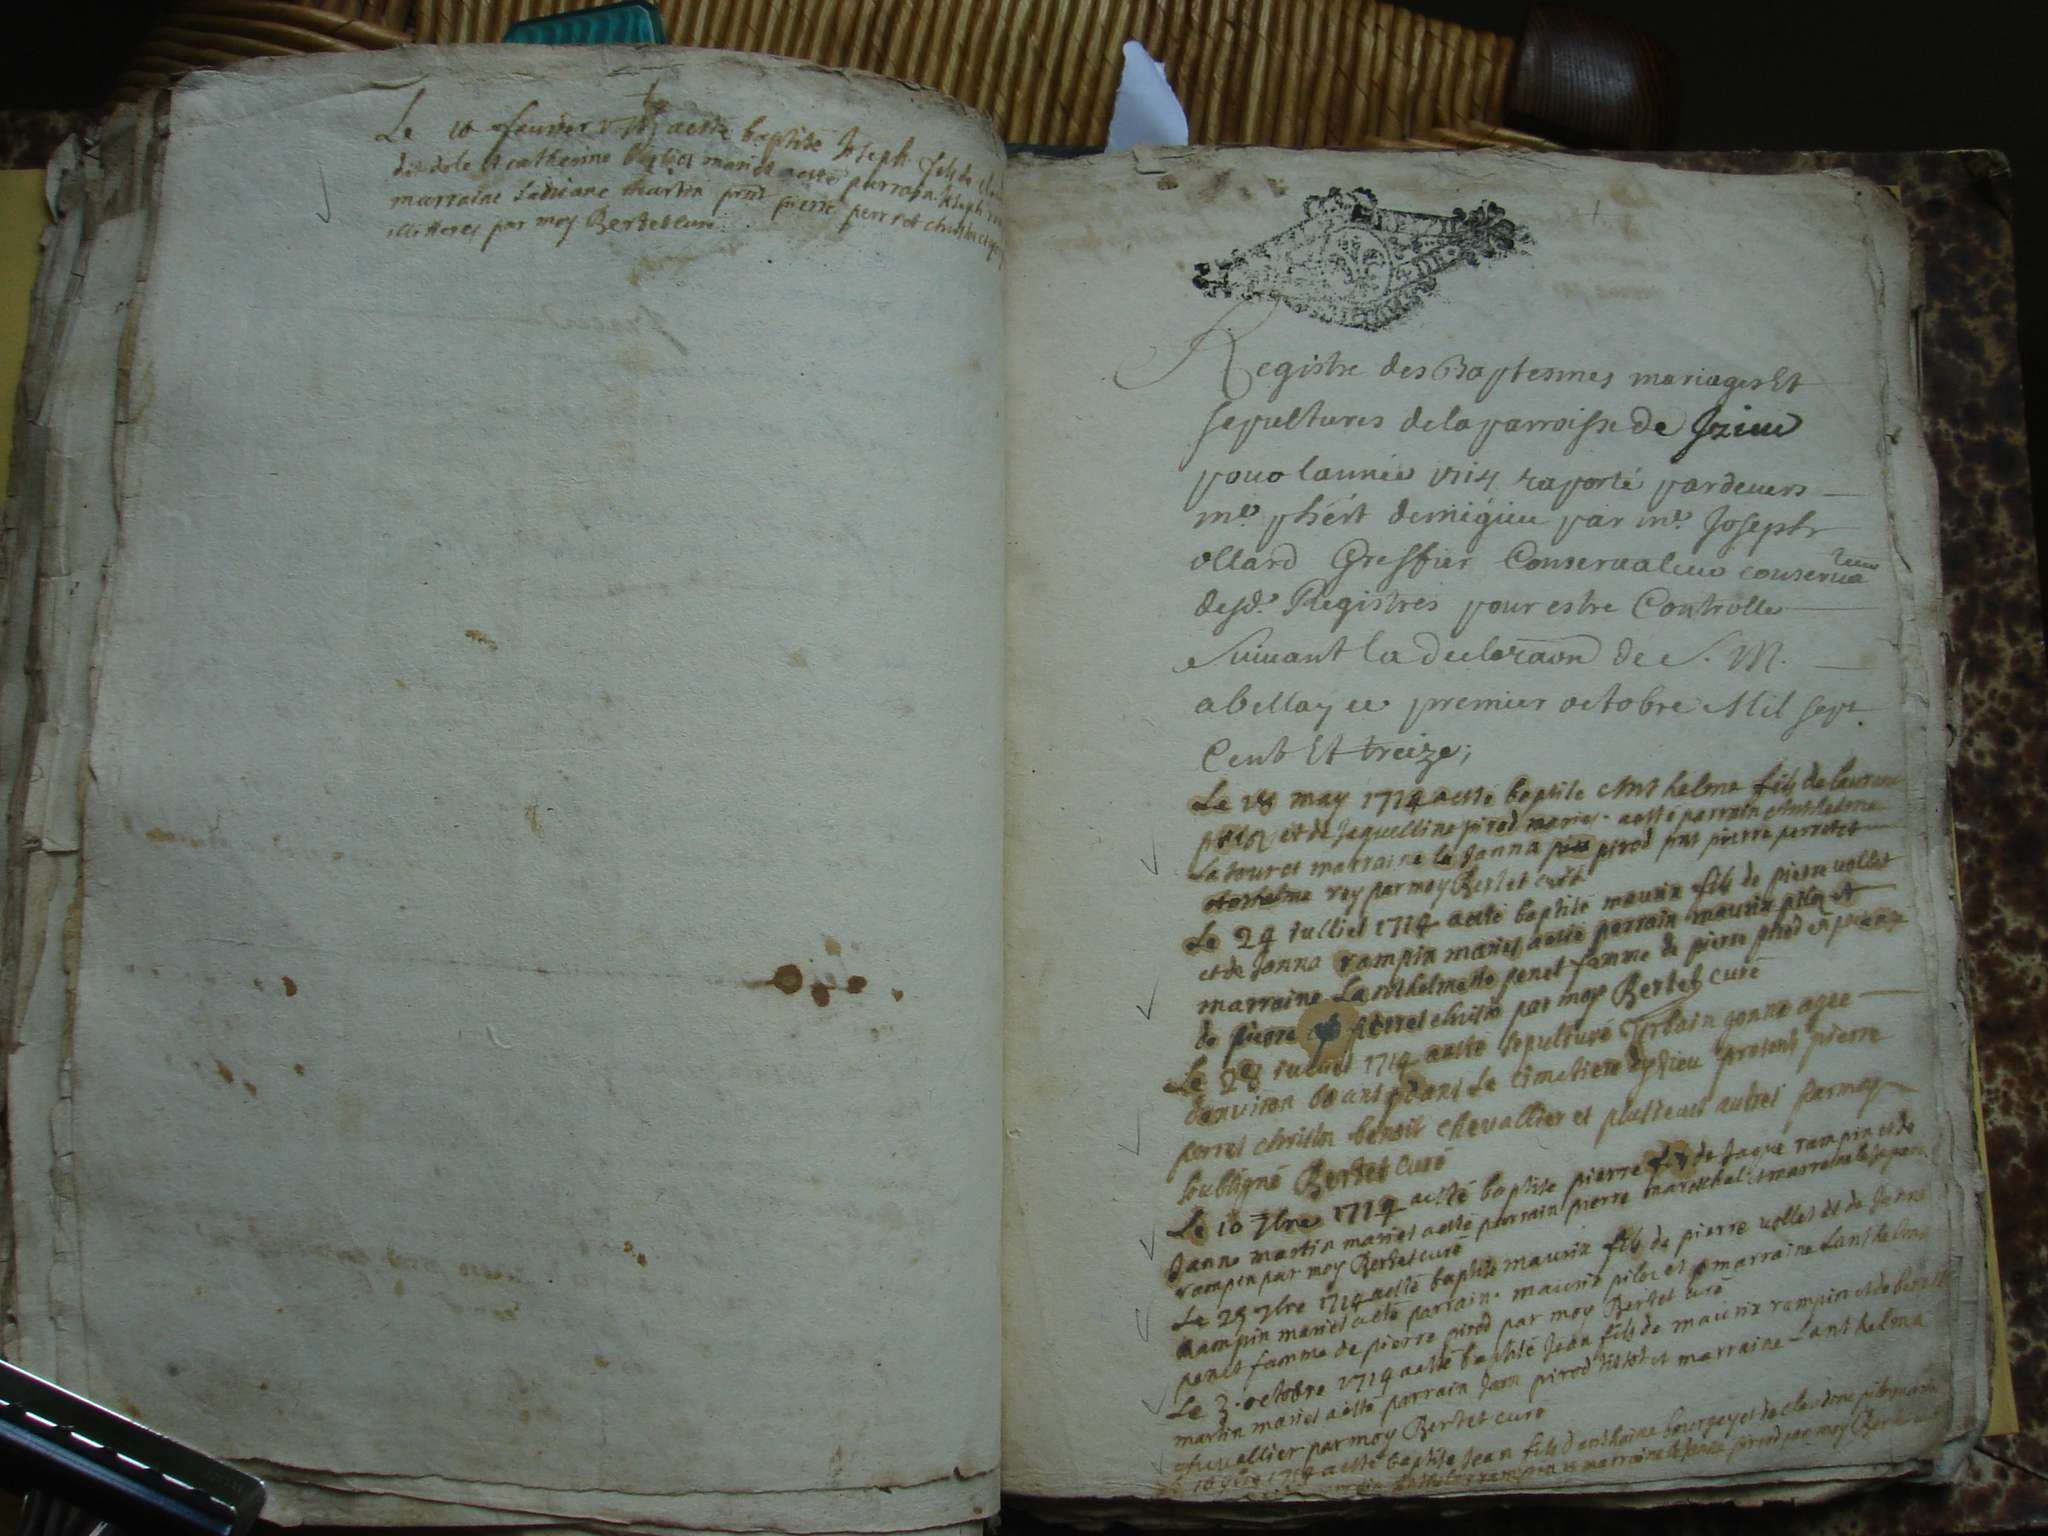 Le 10 feuvrier aeste baptisé Joseph fils de
dit dole et catherine mariés aesté parrain Joseph
marraine martin pnt pierre perret
illitteres par moy Bertet curé
Registre des Baptesmes mariages Et
sepultures de la parroisse de Izieu
pour lannée 1714 raporté pardeuers
me. demigieu par me. Joseph
ollard Greffier Conseruateur conserua
teur
desd. Registres pour estre Controlle
Suiuant la declaraon de S. M.
abellay ce premier octobre Mil sept
Cent Et treize;
Le 18 may 1714 aesté baptisé Anthelme fils de laurans
piloz et de Jaquelline pirod mariés. aesté parrain Anthelme
Latour et marraine la Janna pirod pnt pierre perret et
Anthelme rey par moy Bertet curé
Le 24 iulliet 1714 aesté baptisé mauriz fils de pierre uollet
et de Janna rampin mariés aesté parrain mauriz piloz et
marraine Lanthelmette penet famme de pierre pirod
de pierre perret par moy Bertet curé
Le 28 iulliet 1714 aesté sepulturé Urbain gonne agée
denuiron 60 ans dans Le cimetiere dyzieu present pierre
perret benoit cheuallier et plusieurs autres par moy
soubsigné Bertet curé
Le 10 7bre 1714 aesté baptisé pierre fils de Jaque rampin et de
Janne martin mariés aesté parrain pierre mareschal et marraine
rampin par moy Bertet curé
Le 25 7bre 1714 aesté baptisé mauriz fils de pierre uollet et de Janna
Rampin mariés aesté parrain. mauriz piloz et marraine Lanthelme
penet famme de pierre pirod par moy Bertet curé
Le 3. octobre 1714 aesté baptisé Jean fils de mauriz rampin et de
martin mariés aesté parrain Jean pirod et marraine Lanthelma
cheuallier par moy Bertet curé
1714 aesté baptisé Jean fils danthoine bourgey et de claudine piloz mariés
rampin et marraine pirod par moy Bertet